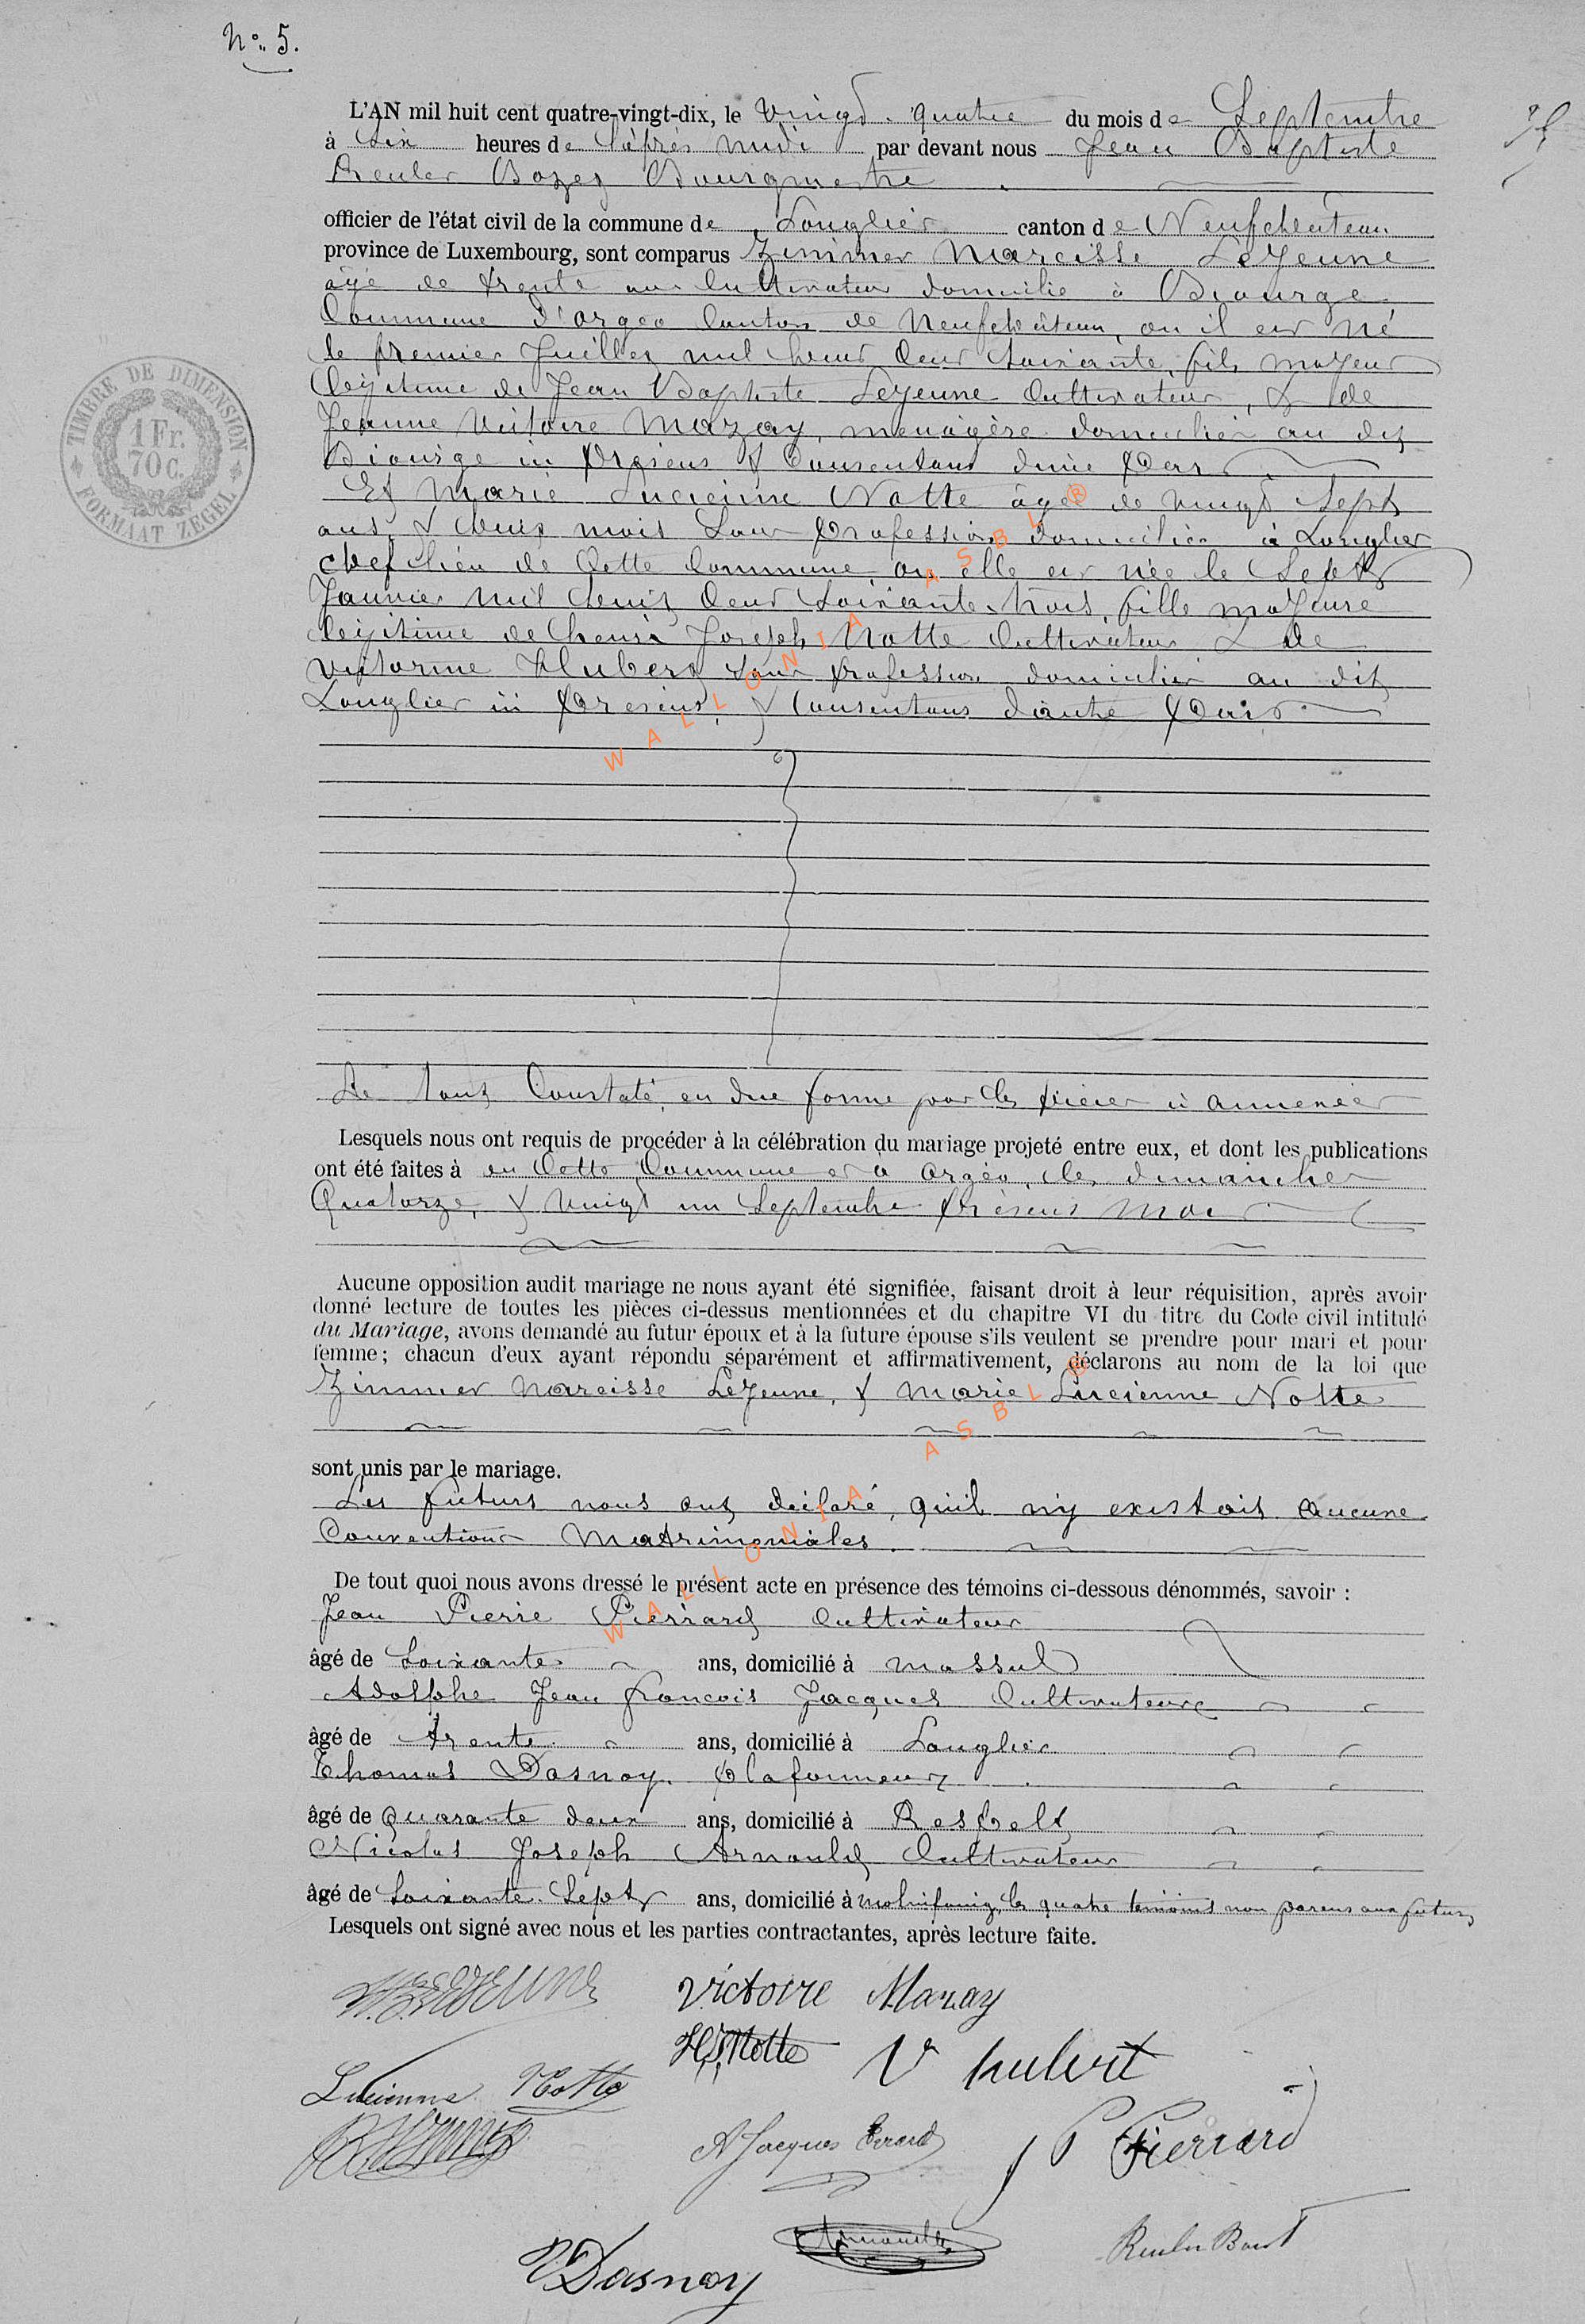 N° 5.
L'AN mil huit cent quatre-vingt-dix, le vingt-quatre du mois de Septembre
à Six heures de l'après midi par devant nous Jean Baptiste
Reuler Bozet Bourgmestre
officier de l'état civil de la commune de Longlier canton de Neufchâteau
province de Luxembourg, sont comparus Zimmer Narcisse LeJeune
âgé de trente ans Cultivateur domicilié à Biourge
Commune d'Orgeo Canton de Neufchâteau, où il est né
le premier Juillet mil huit Cent Soixante, fils majeur
légitime de Jean Baptiste LeJeune Cultivateur, & de
Jeanne Victoire Mazay, ménagère domiciliés au dit
Biourge ici présens & Consentans d'une part
Et Marie Lucienne Notte âgée de vingt Sept
ans & deux mois Sans profession domiciliée à Longlier
chef lieu de Cette Commune où elle est née le Sept
Janvier mil huit Cent Soixante trois, fille majeure
légitime de henri Joseph Notte Cultivateur & de
Victorine Hubert sans profession domiciliés au dit
Longlier ici présens & Consentans d'autre part
Le tout Constaté en due forme par les pièces ci annexées
Lesquels nous ont requis de procéder à la célébration du mariage projeté entre eux, et dont les publications
ont été faites à en Cette Commune et à Orgéo, les dimanches
Quatorze, & vingt un Septembre présens mois
Aucune opposition audit mariage ne nous ayant été signifiée, faisant droit à leur réquisition, après avoir
donné lecture de toutes les pièces ci-dessus mentionnées et du chapitre VI du titre du Code civil intitulé
du Mariage, avons demandé au futur époux et à la future épouse s'ils veulent se prendre pour mari et pour
femme; chacun d'eux ayant répondu séparément et affirmativement, déclarons au nom de la loi que
Zimmer Narcisse LeJeune, & Marie Lucienne Notte
sont unis par le mariage.
Les futurs nous ont déclaré, qu'il n'y existait aucune
Conventions Matrimoniales.
De tout quoi nous avons dressé le présent acte en présence des témoins ci-dessous dénommés, savoir :
Jean Pierre Pierrard Cultivateur
âgé de Soixante ans, domicilié à Massul
Adolphe Jean françois Jacques Cultivateur
âgé de trente ans, domicilié à Longlier
Thomas Dasnoy. plafonneur
âgé de quarante deux ans, domicilié à Respelt
Nicolas Joseph Arnould Cultivateur
âgé de Soixante-Sept ans, domicilié à molinfaing, les quatre témoins non parens aux futurs
Lesquels ont signé avec nous et les parties contractantes, après lecture faite.
Victoire Mazay
HJ Notte V hubert
Lucienne Notte
A Jacques J P Pierrard
Arnould
Dasnoy
TIMBRE DE DIMENSION
1 Fr.
70 C.
FORMAAT ZEGEL
WALLONIA ASBL ®
WALLONIA ASBL ®